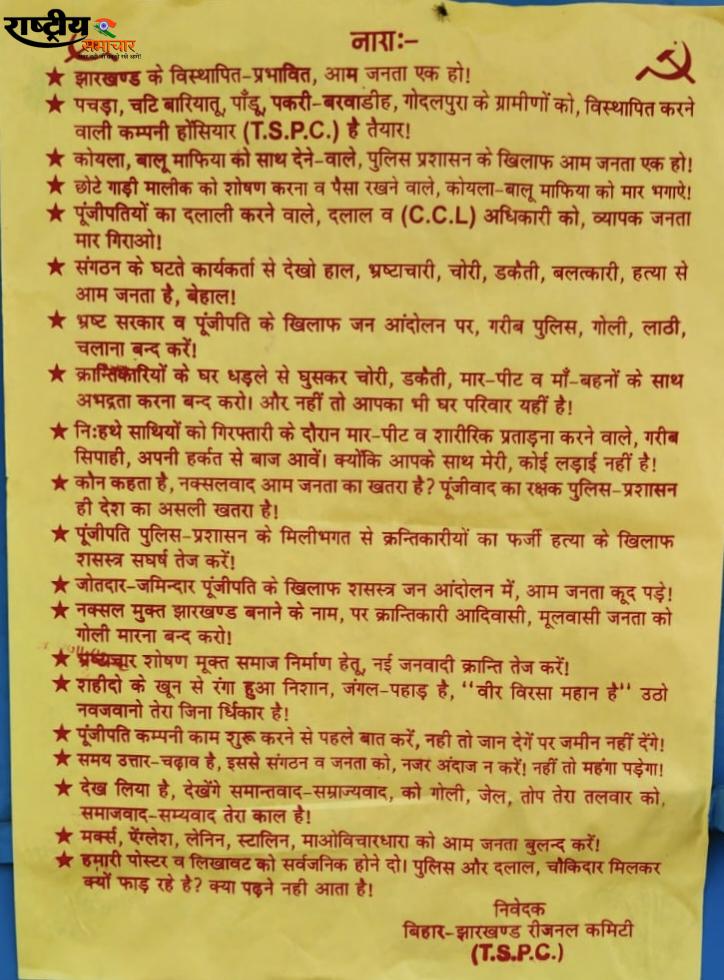 राष्ट्रीय
समाचार
नाराः-
★ झारखण्ड के विस्थापित-प्रभावित, आम जनता एक हो!
★ पचड़ा, चटि बारियातू, पाँडू, पकरी-बरवाडीह, गोदलपुरा के ग्रामीणों को, विस्थापित करने
वाली कम्पनी होंसियार (T.S.P.C.) है तैयार!
★ कोयला, बालू माफिया को साथ देने-वाले, पुलिस प्रशासन के खिलाफ आम जनता एक हो!
★ छोटे गाड़ी मालीक को शोषण करना व पैसा रखने वाले, कोयला-बालू माफिया को मार भगाऐ!
★ पूंजीपतियों का दलाली करने वाले, दलाल व (C.C.L) अधिकारी को, व्यापक जनता
मार गिराओ!
★ संगठन के घटते कार्यकर्ता से देखो हाल, भ्रष्टाचारी, चोरी, डकैती, बलत्कारी, हत्या से
आम जनता है, बेहाल!
★ भ्रष्ट सरकार व पूंजीपति के खिलाफ जन आंदोलन पर, गरीब पुलिस, गोली, लाठी,
चलाना बन्द करें!
★ क्रान्तिकारियों के घर धड़ले से घुसकर चोरी, डकैती, मार-पीट व माँ-बहनों के साथ
अभद्रता करना बन्द करो। और नहीं तो आपका भी घर परिवार यहीं है!
★ निःहथे साथियों को गिरफ्तारी के दौरान मार-पीट व शारीरिक प्रताड़ना करने वाले, गरीब
सिपाही, अपनी हर्कत से बाज आवें। क्योंकि आपके साथ मेरी, कोई लड़ाई नहीं है!
★ कौन कहता है, नक्सलवाद आम जनता का खतरा है? पूंजीवाद का रक्षक पुलिस-प्रशासन
ही देश का असली खतरा है!
★ पूंजीपति पुलिस-प्रशासन के मिलीभगत से क्रन्तिकारीयों का फर्जी हत्या के खिलाफ
शसस्त्र सघर्ष तेज करें!
★ जोतदार-जमिन्दार पूंजीपति के खिलाफ शसस्त्र जन आंदोलन में, आम जनता कूद पड़े!
★ नक्सल मुक्त झारखण्ड बनाने के नाम, पर क्रान्तिकारी आदिवासी, मूलवासी जनता को
गोली मारना बन्द करो!
★ भ्रष्टाचार शोषण मूक्त समाज निर्माण हेतू, नई जनवादी क्रान्ति तेज करें!
★ शहीदो के खून से रंगा हुआ निशान, जंगल-पहाड़ है, "वीर विरसा महान है" उठो
नवजवानो तेरा जिना र्धिकार है!
★ पूंजीपति कम्पनी काम शुरू करने से पहले बात करें, नही तो जान देगें पर जमीन नहीं देंगे!
★ समय उत्तार-चढ़ाव है, इससे संगठन व जनता को, नजर अंदाज न करें! नहीं तो महंगा पड़ेगा!
★ देख लिया है, देखेंगे समान्तवाद-सम्राज्यवाद, को गोली, जेल, तोप तेरा तलवार को,
समाजवाद-सम्यवाद तेरा काल है!
★ मर्क्स, ऐंग्लेश, लेनिन, स्टालिन, माओविचारधारा को आम जनता बुलन्द करें!
★ हमारी पोस्टर व लिखावट को सर्वजनिक होने दो। पुलिस और दलाल, चौकिदार मिलकर
क्यों फाड़ रहे है? क्या पढ़ने नही आता है!
निवेदक
बिहार-झारखण्ड रीजनल कमिटी
(T.S.P.C.)